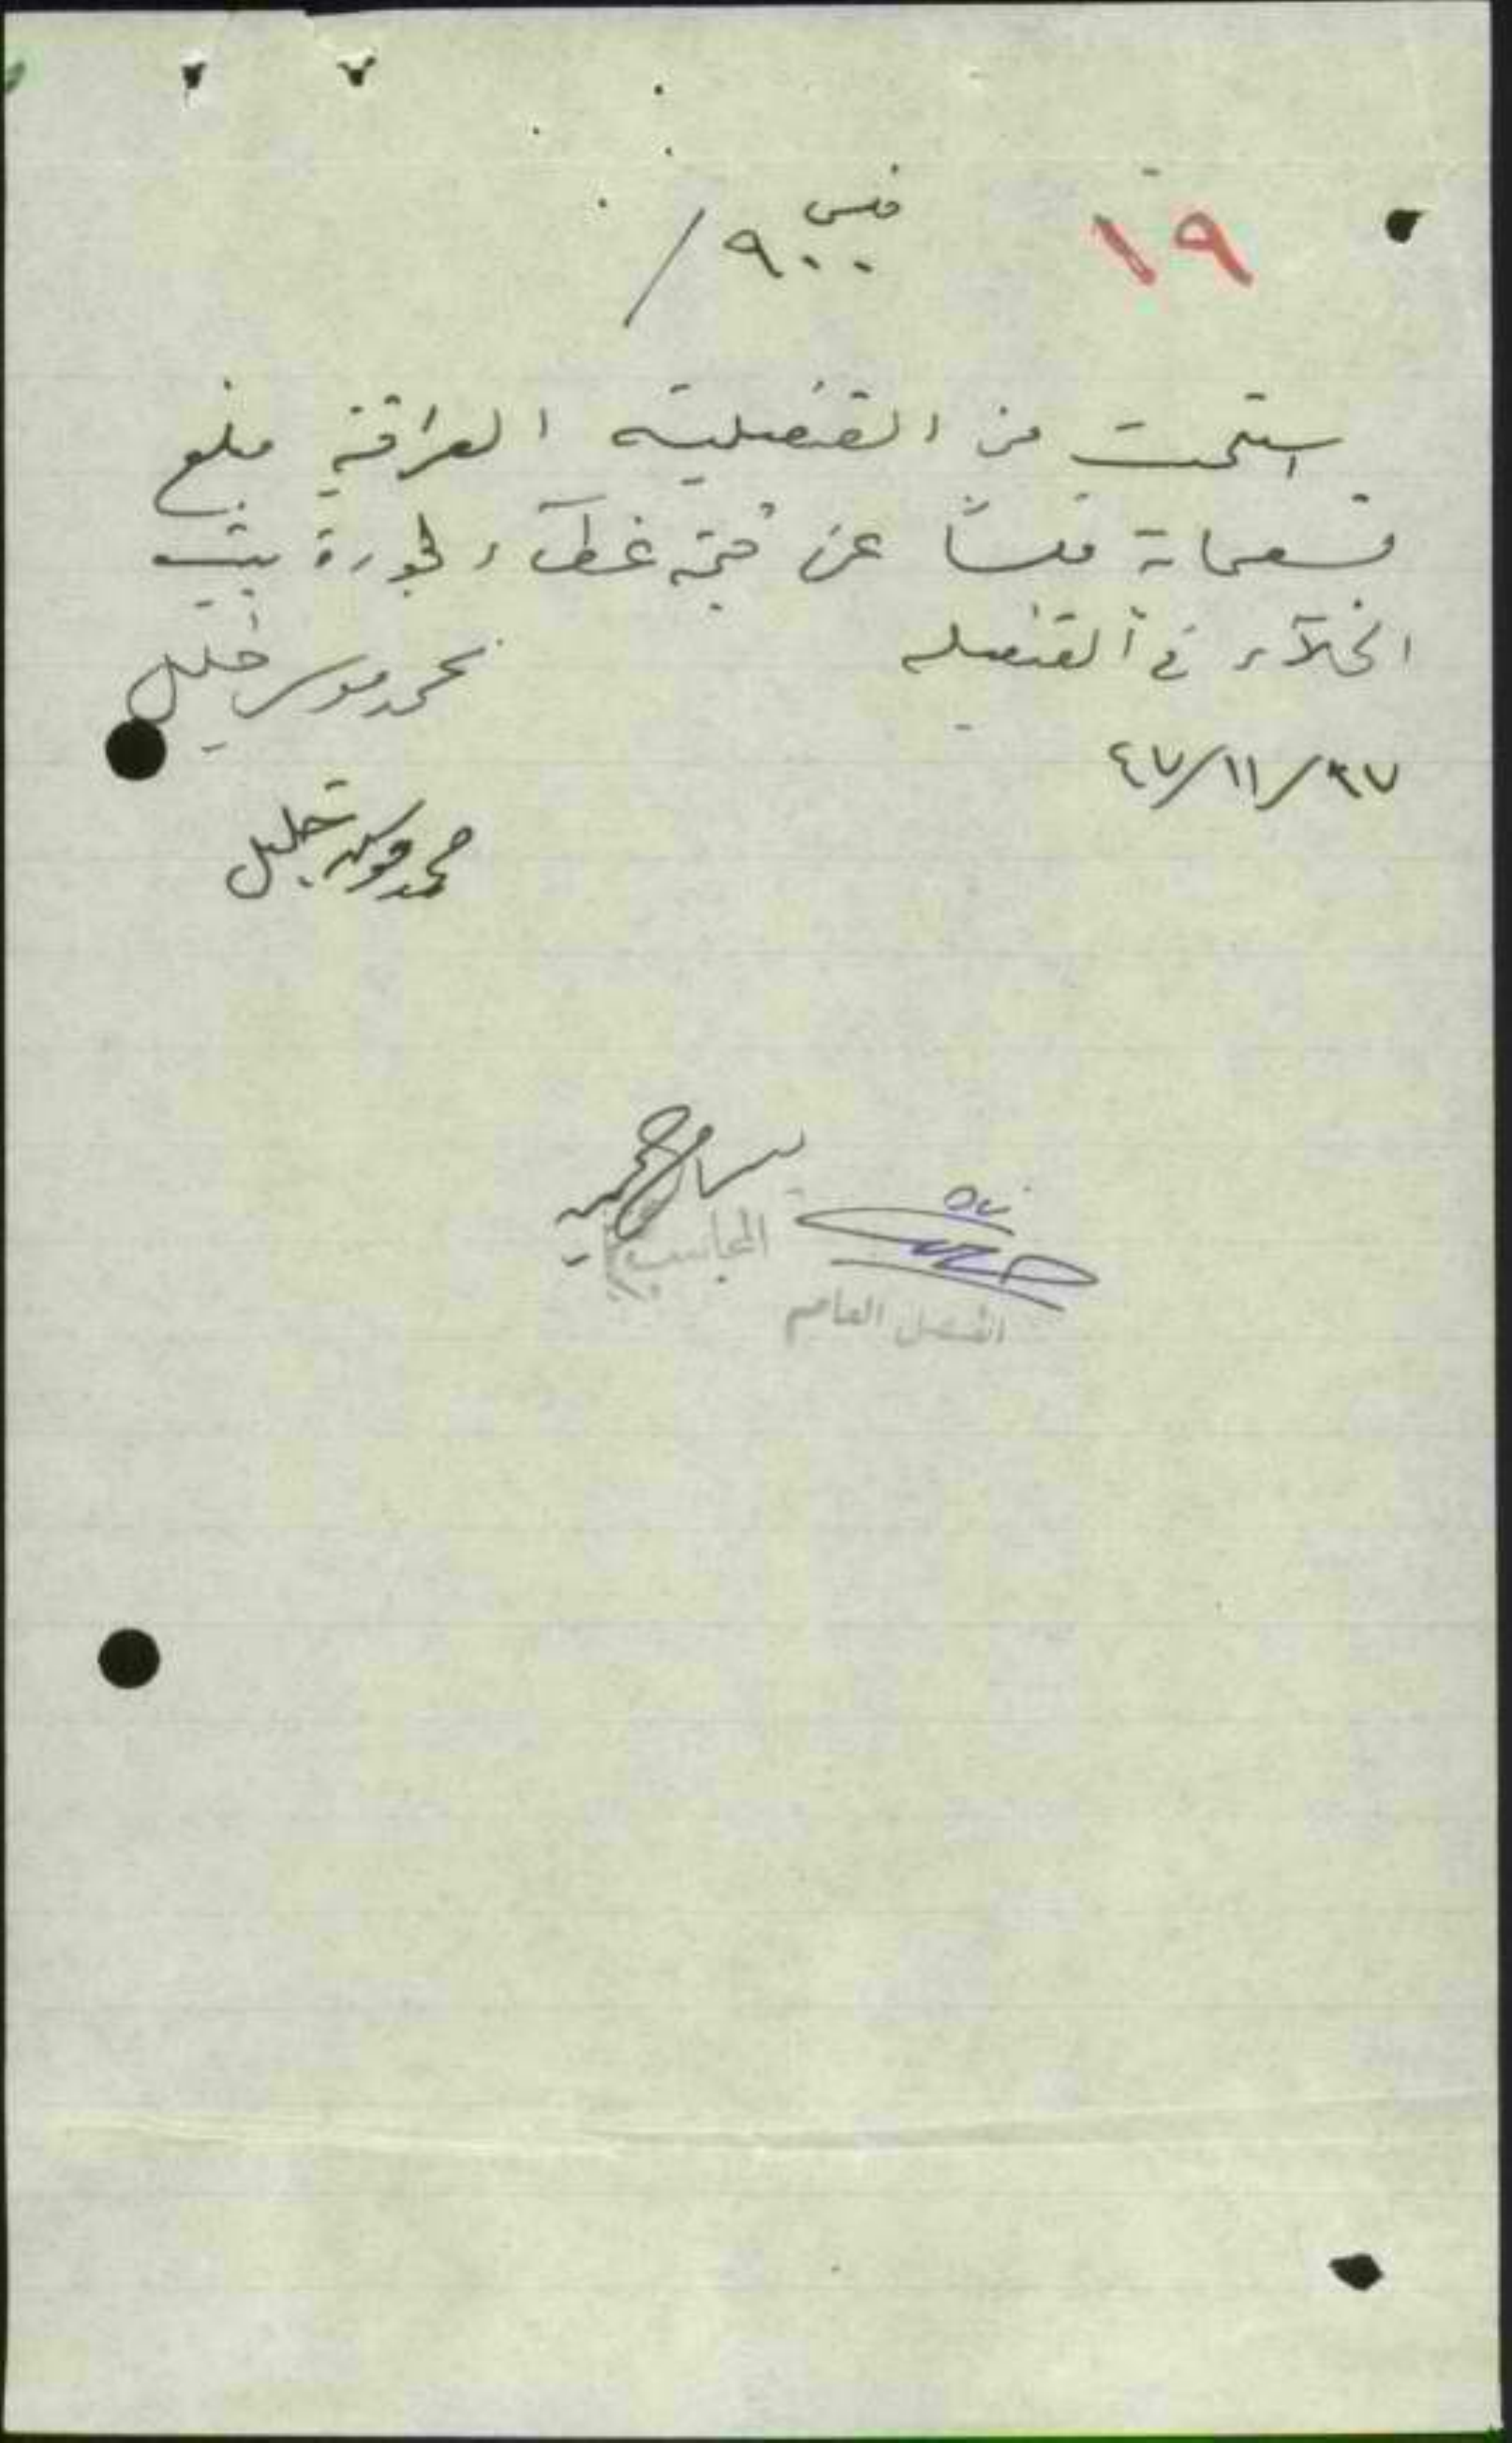 ١٩
فلس
٩٠٠/
استلمت من القنصلية العراقية مبلغ
تسعماية فلساً عن قيمة غطآء لجورة بيت
الخلآء في القنصليه
محمد موسى خليل
٢٧/١١/٤٧
محمد موسى خليل
المحاسب
القنصل العام